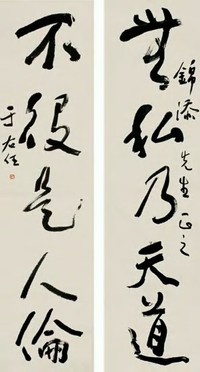 無私乃天道
錦添先生正之
不役是人倫
于右任